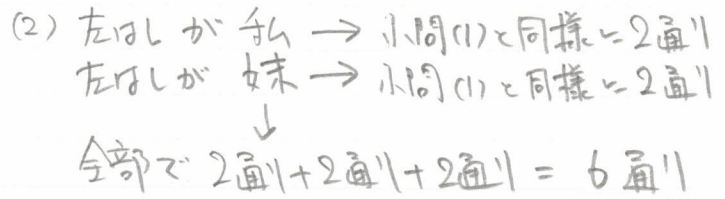 (2) 左はしが 私 → 小問(1)と同様に2通り
左はしが 妹 → 小問(1)と同様に2通り
↓
全部で 2通り+2通り+2通り = 6通り